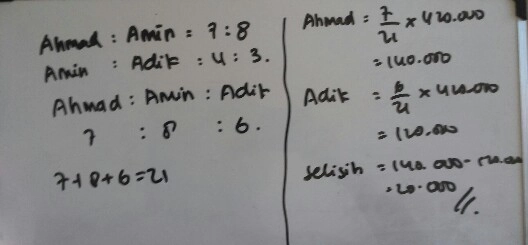 Ahmad : Amin = 7 : 8
Amin : Adik : 4 : 3.
Ahmad : Amin : Adik
7 : 8 : 6.
7+8+6=21
Ahmad = 7/21 x 420.000
= 140.000
Adik = 6/21 x 420.000
= 120.000
Selisih = 140.000 - 120.000
= 20.000 //.